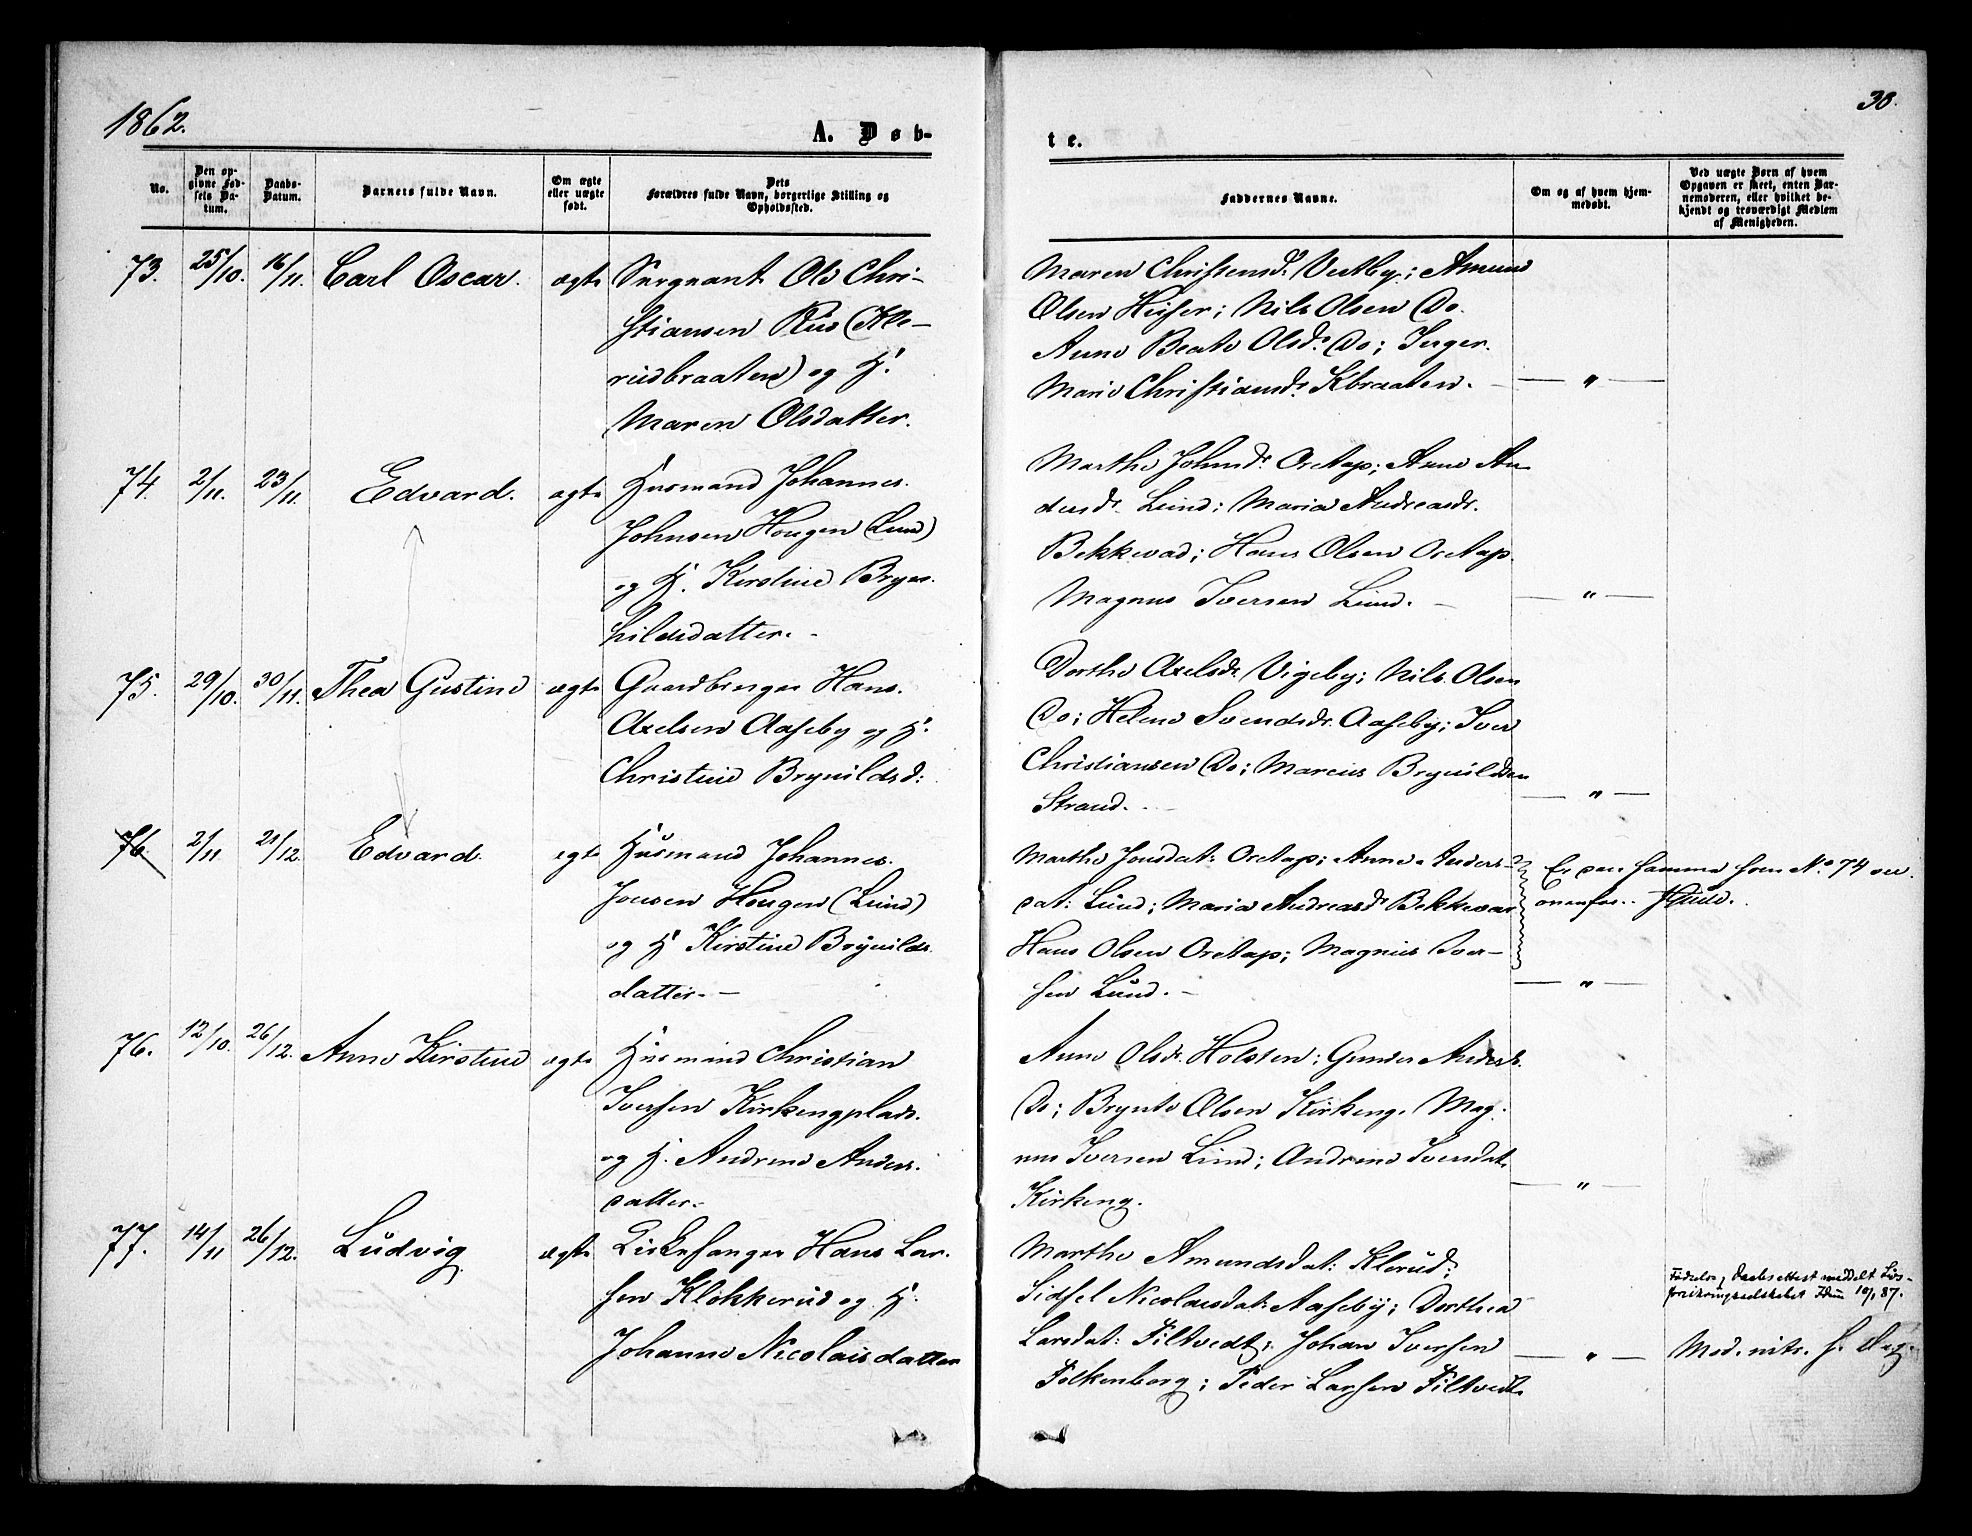 1862.
30.
A. Døb-
te.
No.
Den op-
givne Fød-
sels Da-
tum.
Daabs-
Datum.
Barnets fulde Navn.
Om ægte
eller uægte
født.
Dets
Forældres fulde Navn, borgerlige Stilling og
Opholdssted.
Faddernes Navne.
Om og af hvem hjem-
medøbt.
Ved uægte Børn af hvem
Opgaven er skeet, enten Bar-
nemoderen, eller hvilket be-
kjendt og troværdigt Medlem
af Menigheden.
73. 25/10. 16/11. Carl Oscar. ægte Sergeant Ole Chri-
stiansen Rud (Kle-
rudbraaten) og H.
Maren Olsdatter.
Maren Christensd. Vestby; Amund
Olsen Huser; Nils Olsen Do.
Anne Beate Olsd. Do; Inger
Marie Christiansd. Kbraaten.
— " —
74. 2/11. 23/11. Edvard. ægte Husmand Johannes
Johnsen Hougen (Lund)
og H. Kirstine Bryn-
hildsdatter.
Marthe Johnsd. Oretap; Anne An-
dersd. Lund; Maria Andreasd.
Bekkevad; Hans Olsen Oretap.
Magnus Iversen Lund.
— " —
75. 29/10. 30/11. Thea Gustine ægte Gaardbruger Hans
Axelsen Aaseby og H.
Christine Brynildsd:
Dorthe Axelsd. Vigeby; Nils Olsen
Do; Helene Svendsd. Aaseby; Iver
Christiansen Do; Marcus Brynildsen
Strand.
— " —
76. 2/11 21/12. Edvard. ægte Husmand Johannes
Jonsen Hougen (Lund)
og H Kirstine Brynilds
datter. —
Marthe Jonsdat: Oretap; Anne Anders-
dat: Lund; Maria Andreasd. Bekkevar
Hans Olsen Oretap; Magnus Iver-
sen Lund. —
Er den samme som No 74 see
ovenfor.
— " —
76. 12/10. 26/12. Anne Kirstine ægte Husmand Christian
Iversen Kirkengplads.
og H. Andrine Anders-
datter.
Anne Olsd. Holsten; Gunder Anders.
Do; Brynte Olsen Kirkeng. Mag-
nus Iversen Lund; Andrine Iversdat.
Kirkeng.
— " —
77. 14/11 26/12. Ludvig ægte Hans Lar-
sen Klokkerud og H.
Johanne Nicolaisdatter
Marthe Amundsdat: Klerud;
Sidsel Nicolaisdat: Aaseby; Dorthea
Larsdat: Filtvedt; Johan Iversen
Folkenborg; Peder Larsen Filtvedt.
— " —
Fødsels, Daabsattest meddelt Livs-
forsikringsselskabet Idun 10/1 87.